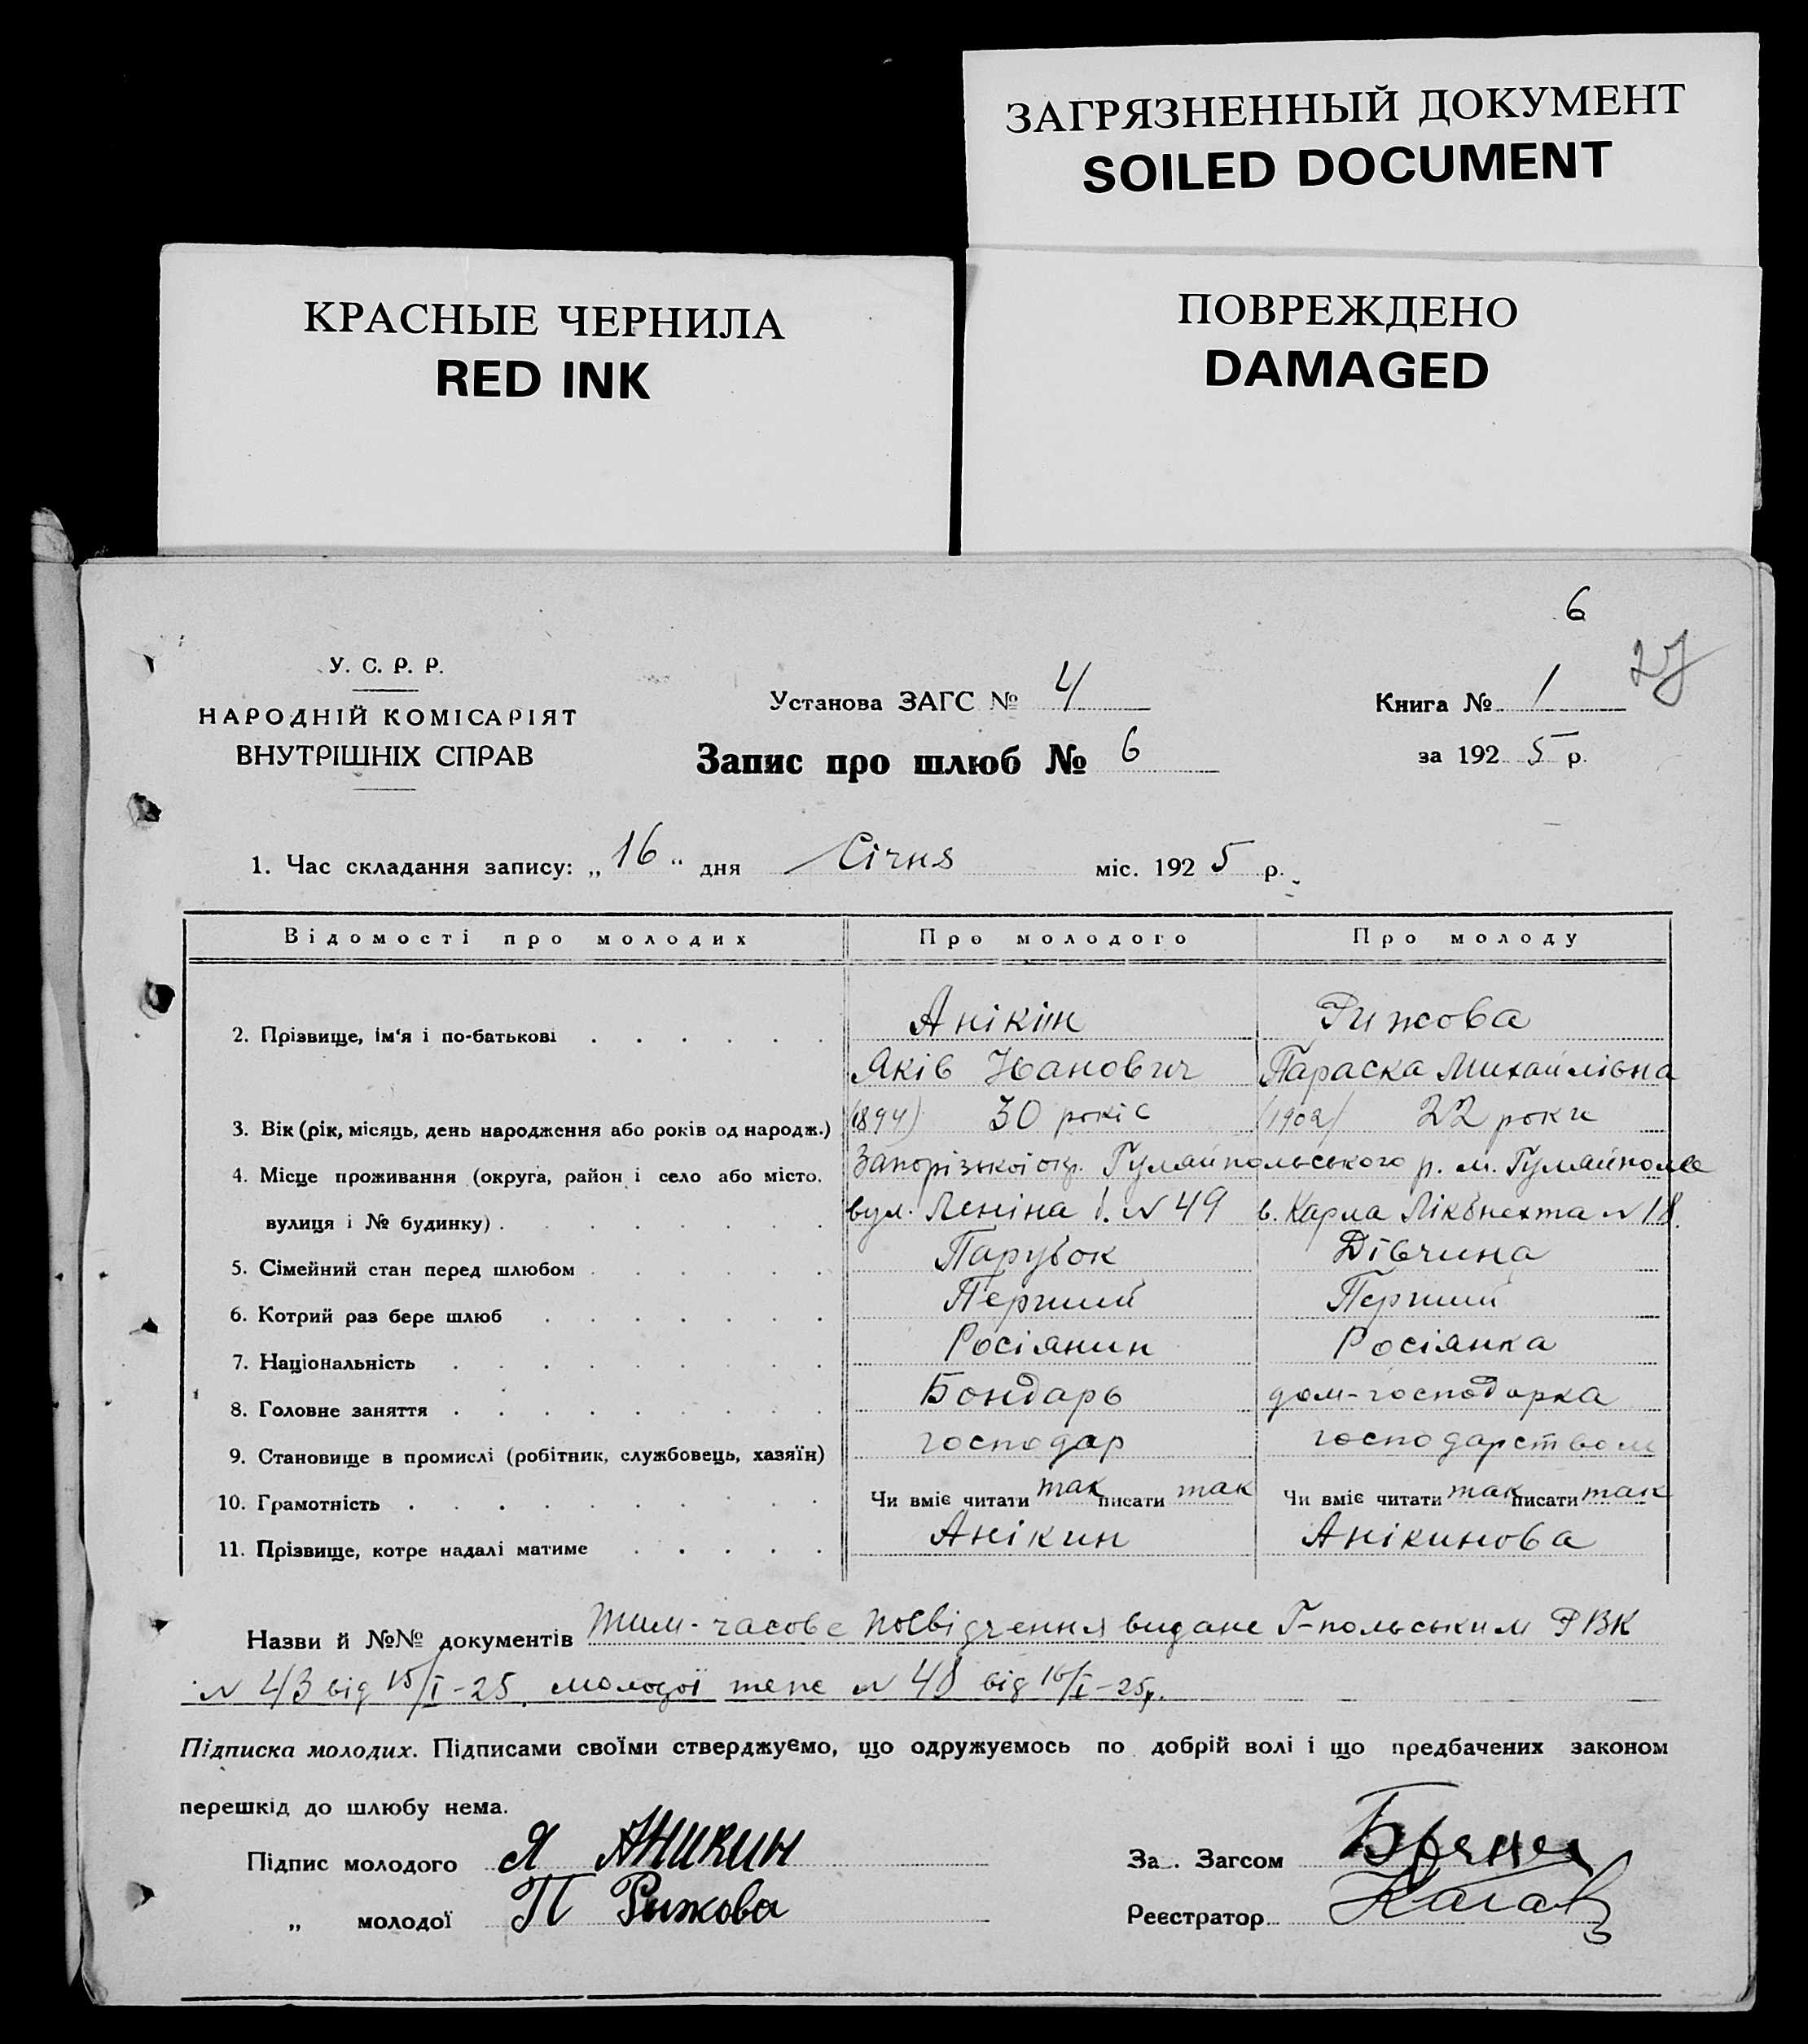 ЗАГРЯЗНЕННЫЙ ДОКУМЕНТ
SOILED DOCUMENT
КРАСНЫЕ ЧЕРНИЛА
RED INK
ПОВРЕЖДЕНО
DAMAGED
6
27
У. С. Р. Р.
НАРОДНІЙ КОМІСАРІЯТ
ВНУТРІШНІХ СПРАВ
Установа ЗАГС № 4
Запис про шлюб № 6
Книга № 1
за 1925 р.
1. Час складання запису: „16" дня Січня міс. 1925 р.
Відомості про молодих Про молодого Про молоду
2. Прізвище, ім'я і по-батькові Анікін Рижова
Яків Іванович Параска Михайлівна
3. Вік (рік, місяць, день народження або років од народж.) (1894) 30 років (1902) 22 роки
4. Місце проживання (округа, район і село або місто, Запорізької окр. Гуляйпольського р. м. Гуляйполе
вулиця і № будинку) вул. Леніна б. № 49 в. Карла Лікбнехта № 18.
5. Сімейний стан перед шлюбом Парубок Дівчина
6. Котрий раз бере шлюб Перший Перший
7. Національність Росіянин Росіянка
8. Головне заняття Бондарь дом-господарка
9. Становище в промислі (робітник, службовець, хазяїн) господар господарством
10. Грамотність Чи вміє читати так писати так Чи вміє читати так писати так
11. Прізвище, котре надалі матиме Анікин Анікинова
Назви й №№ документів Тим-часове посвідчення видане Г-польським РВК
№ 43 від 15/I-25. молодої теж № 48 від 16/I-25р.
Підписка молодих. Підписами своїми стверджуємо, що одружуємось по добрій волі і що предбачених законом
перешкід до шлюбу нема.
Підпис молодого Я Аникин
За . Загсом
„ молодої П Рижова
Реєстратор